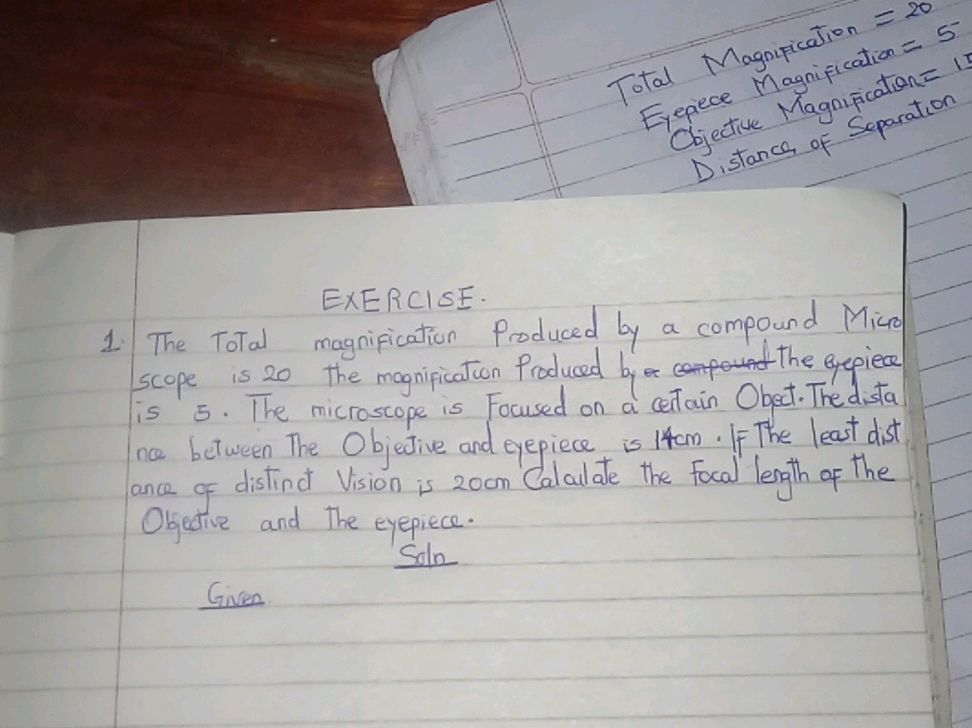 Total Magnification = 20
Eyepiece Magnification = 5
Objective Magnification =
Distance of Separation
EXERCISE.
1. The Total magnification Produced by a compound Micro
scope is 20 the magnification Produced by compound The eyepiece
is 5. The microscope is Focused on a certain Object. The dista
nce between The Objective and eyepiece is 14cm. If The least dist
ance of distinct Vision is 20cm Calculate the focal length of the
Objective and The eyepiece.
Soln
Given